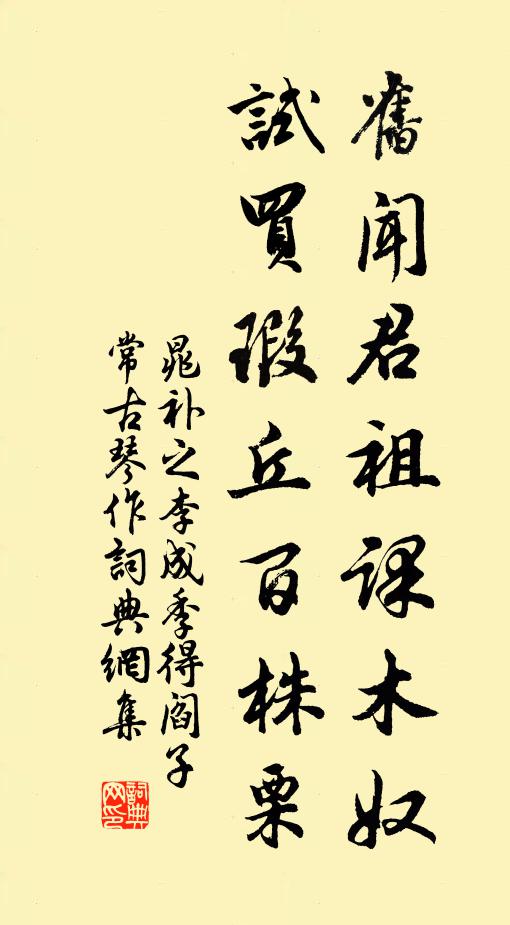 舊聞君祖課木奴
試買瑕丘百株栗
晁補之李成季得閻子
常古琴作詞典網集
詞典
网印